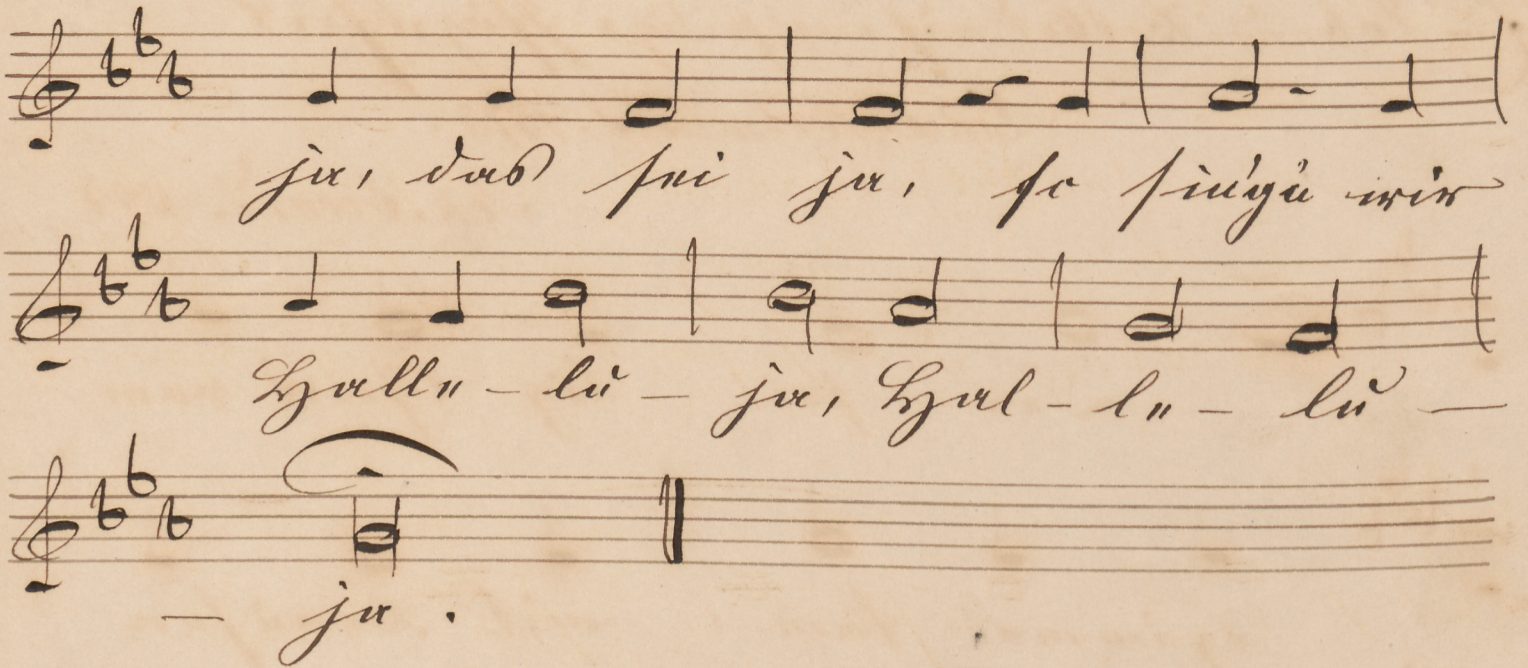 ja, das sei ja, so singen wir
Halle - lu - ja, Hal - le - lu -
- ja.